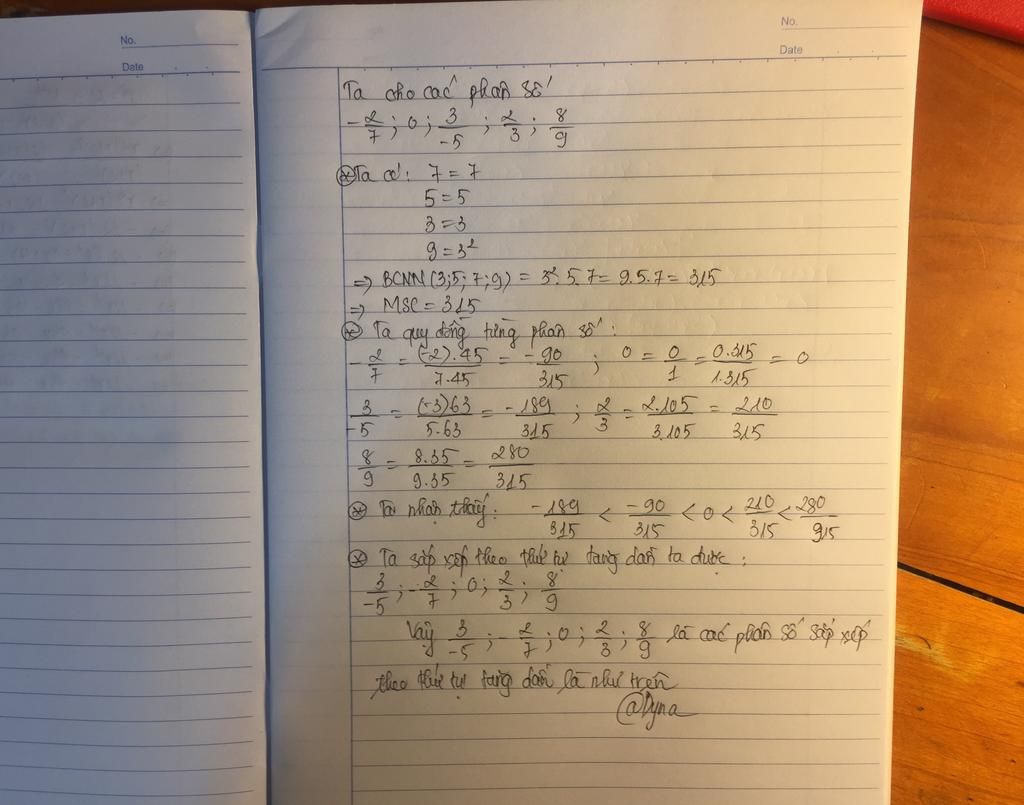 No.
Date
No.
Date
Ta cho các phân số
-2/7 ; 0 ; 3/-5 ; 2/3 ; 8/9
⊛ Ta có: 7 = 7
5 = 5
3 = 3
9 = 3²
=> BCNN (3;5;7;9) = 3².5.7 = 9.5.7 = 315
=> MSC = 315
⊛ Ta quy đồng từng phân số :
-2/7 = (-2).45/7.45 = -90/315 ; 0 = 0/1 = 0.315/1.315 = 0
3/-5 = (-3)63/5.63 = -189/315 ; 2/3 = 2.105/3.105 = 210/315
8/9 = 8.35/9.35 = 280/315
⊛ Ta nhận thấy: -189/315 < -90/315 < 0 < 210/315 < 280/915
⊛ Ta sắp xếp theo thứ tự tăng dần ta được :
3/-5 ; -2/7 ; 0 ; 2/3 ; 8/9
Vậy 3/-5 ; -2/7 ; 0 ; 2/3 ; 8/9 là các phân số sắp xếp
theo thứ tự tăng dần là như trên
@Dyna